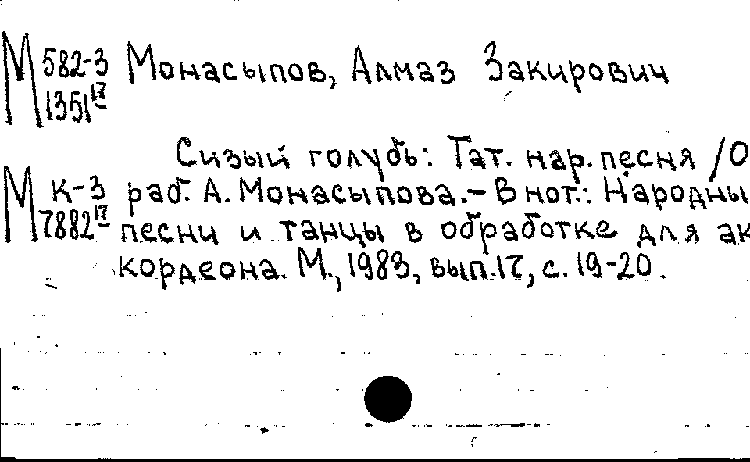 М 582-3 Монасыпов, Алмаз Закирович
1351 17
Сизый голубь: Тат. нар. песня /О
М К-3 раб. А. Монасыпова.- В нот.: Народны
7882 17 песни и танцы в обработке для ак
кордеона. М., 1983, вып.17, с. 19-20.